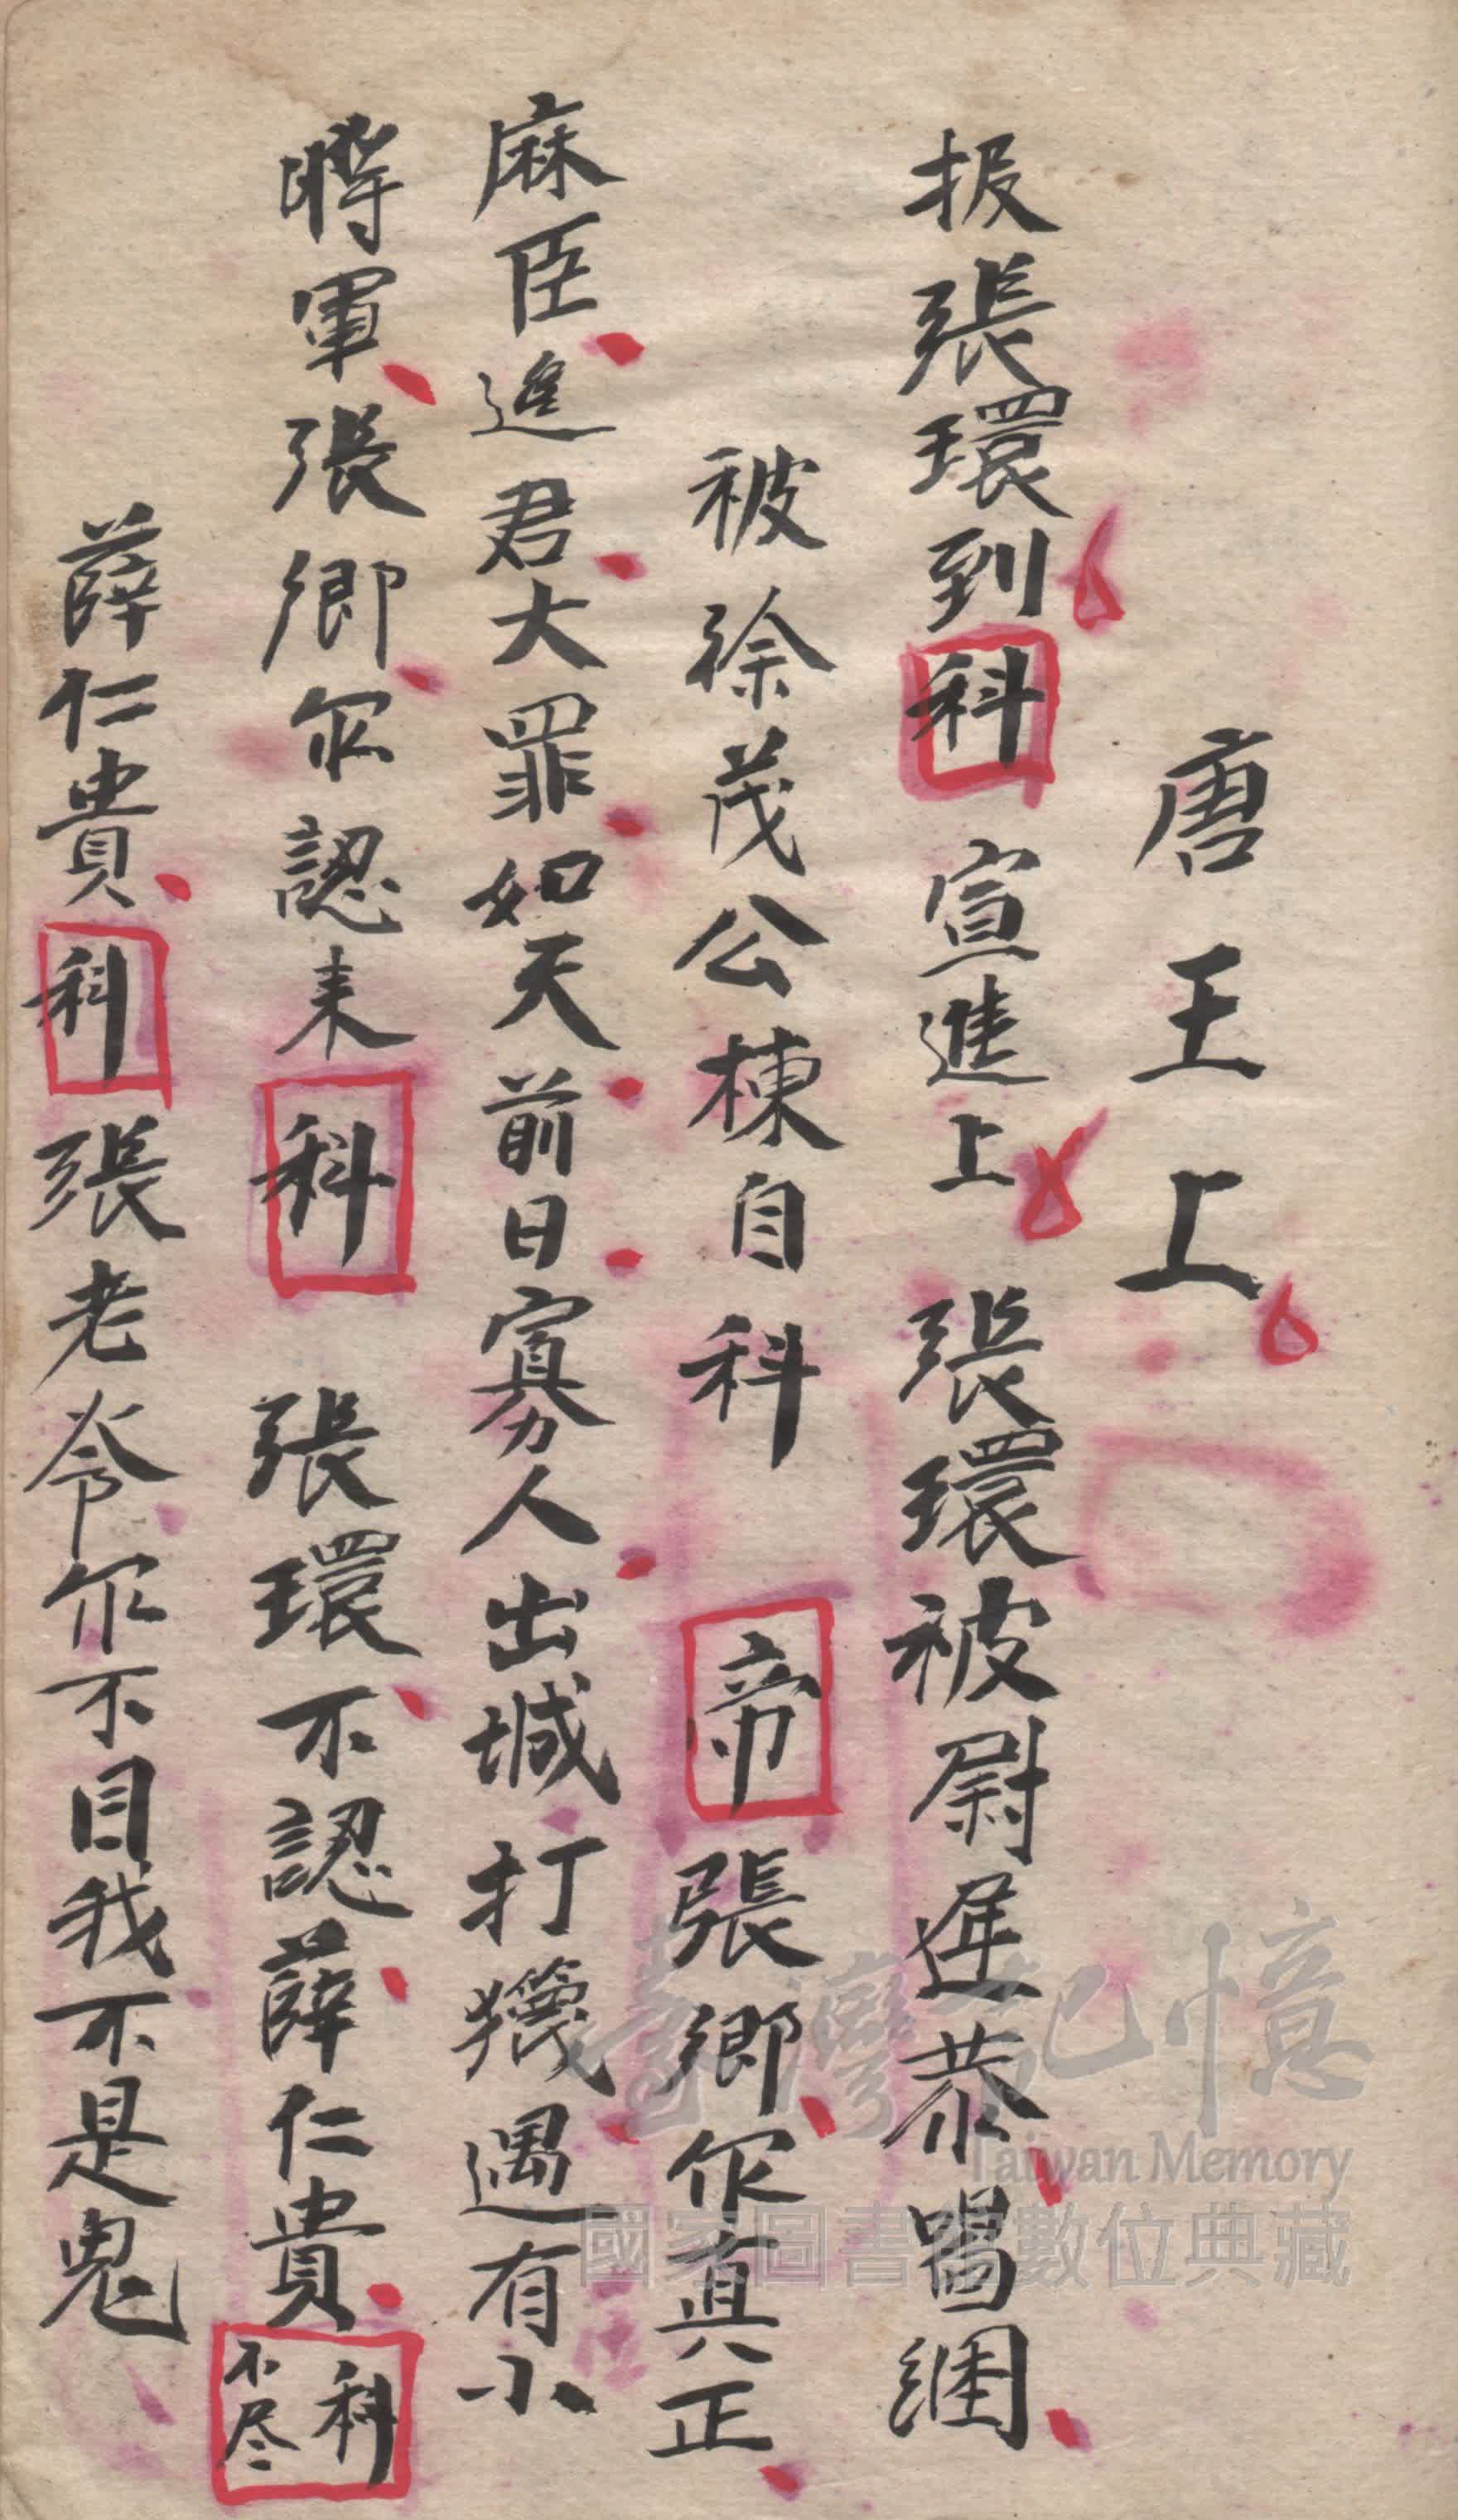 唐王上
报張環到科宣進上張環被尉遅恭喝綑
被徐茂公棟自科帝張卿你真正
麻臣進君大罪如天前日寡人出城打獵遇有小
將軍張卿你認来科張環不認薛仁貴科不尽
薛仁貴科張老爷你不目我不是鬼
臺灣記憶
Taiwan Memory
國家圖書館數位典藏